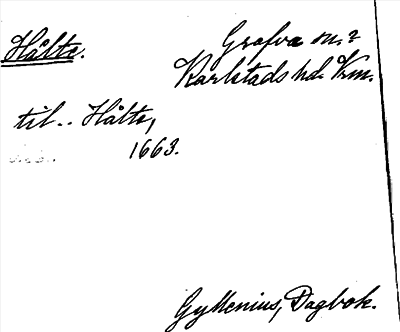 Hålte.
Grafva sn. ?
Karlstads hd. Vrm.
til.. Hålte,
1663.
Gyllenius, Dagbok.